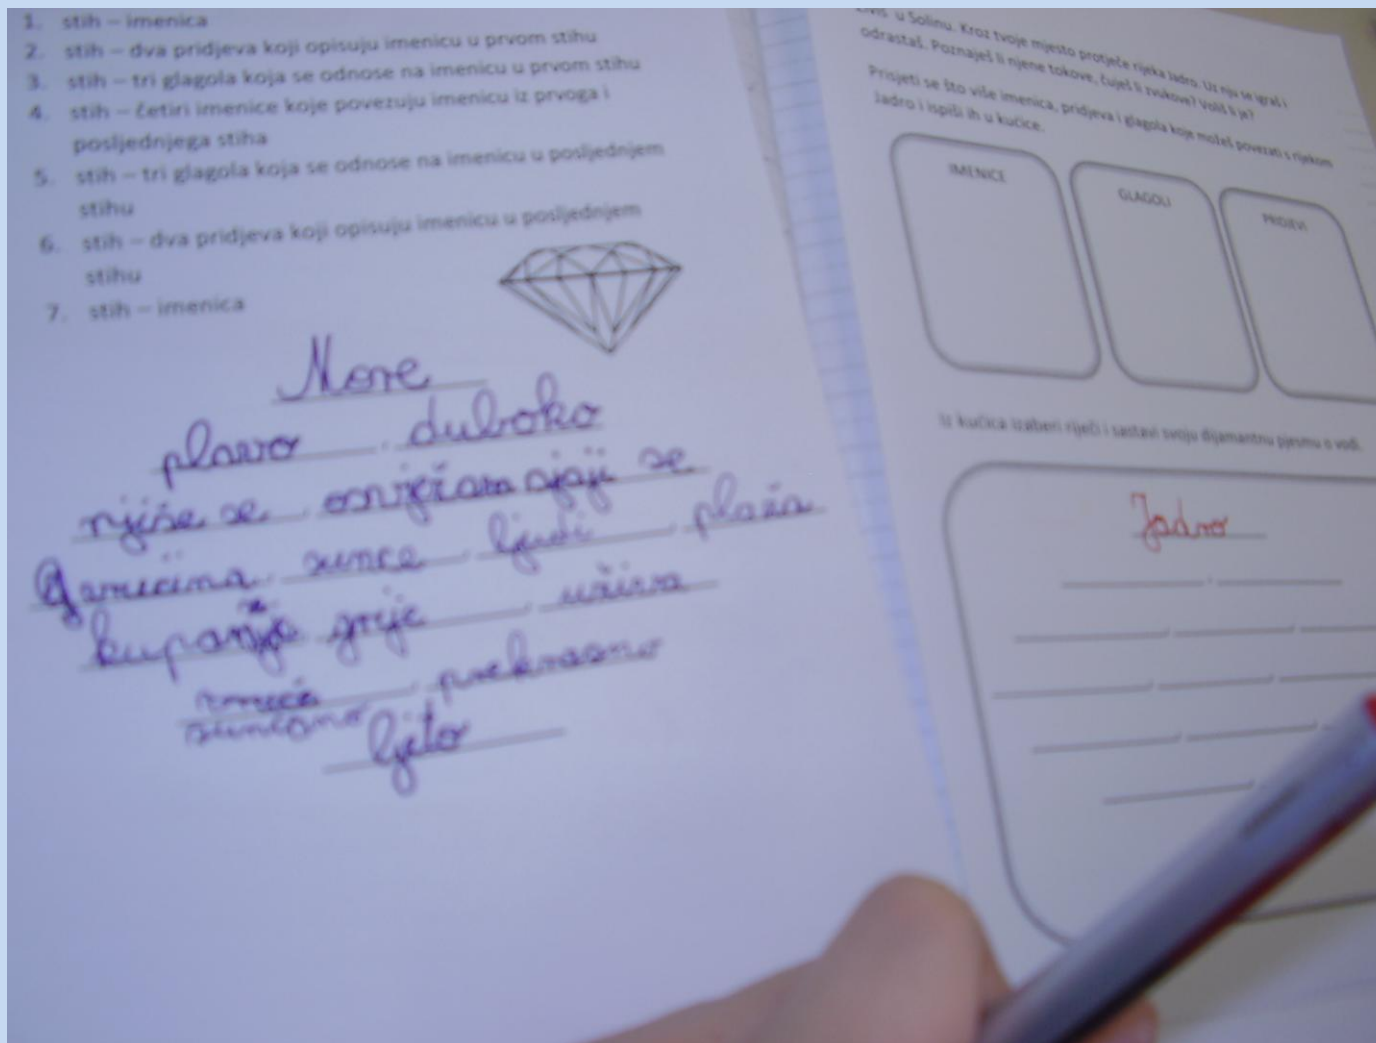 1. stih – imenica
2. stih – dva pridjeva koji opisuju imenicu u prvom stihu
3. stih – tri glagola koja se odnose na imenicu u prvom stihu
4. stih – četiri imenice koje povezuju imenicu iz prvoga i
posljednjega stiha
5. stih – tri glagola koja se odnose na imenicu u posljednjem
stihu
6. stih – dva pridjeva koji opisuju imenicu u posljednjem
stihu
7. stih – imenica
More
plavo, duboko
njiše se, osvježava sjaji se
sunce, ljudi, plaža
grije, uživa
prekrasno
sunčano
ljeto
živiš u Solinu. Kroz tvoje mjesto protječe rijeka Jadro. Uz nju se igraš i
odrastaš. Poznaješ li njene tokove, čuješ li zvukove? Voliš li je?
Prisjeti se što više imenica, pridjeva i glagola koje možeš povezati s rijekom
Jadro i ispiši ih u kućice.
IMENICE
GLAGOLI
PRIDJEVI
Iz kućica izaberi riječi i sastavi svoju dijamantnu pjesmu o vodi.
Jadro